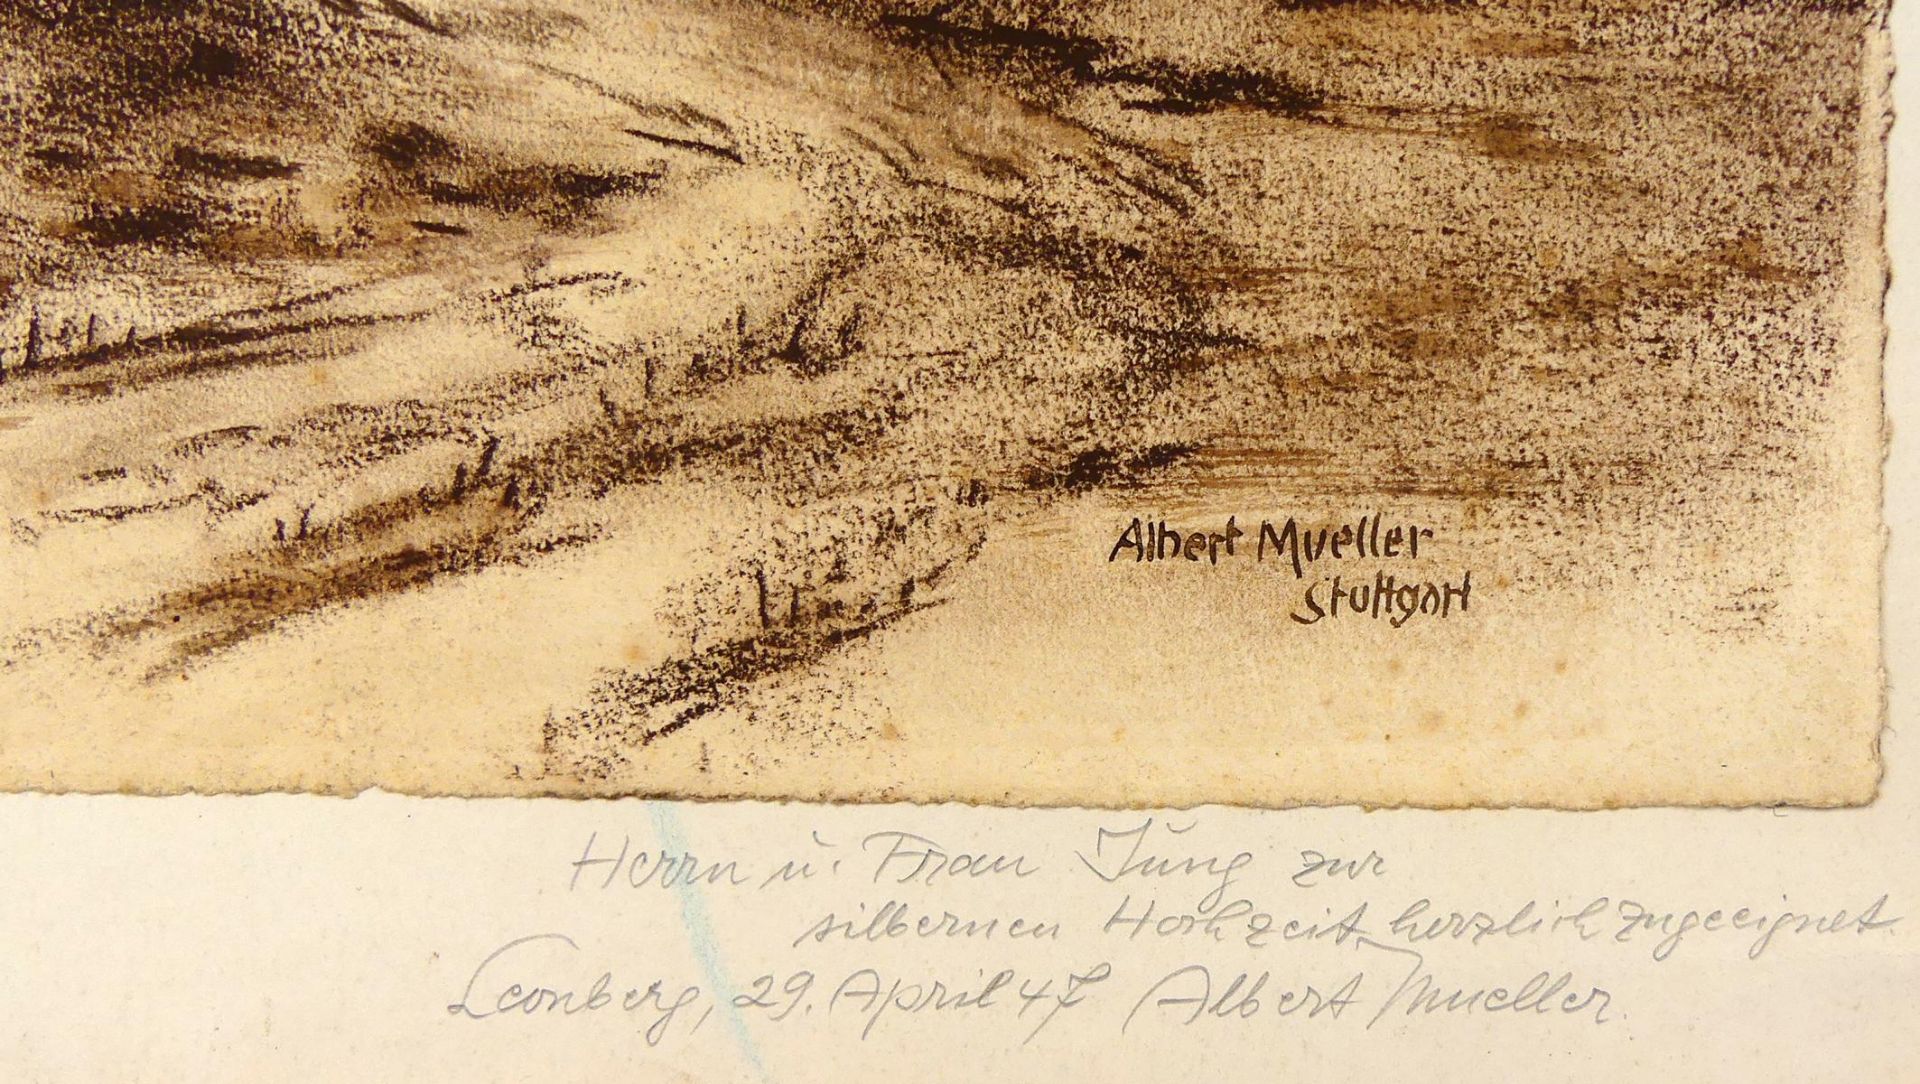 Albert Mueller
Stuttgart
Herrn u. Frau Jung zur
silbernen Hochzeit herzlich zugeeignet.
Leonberg, 29. April 47 Albert Mueller.